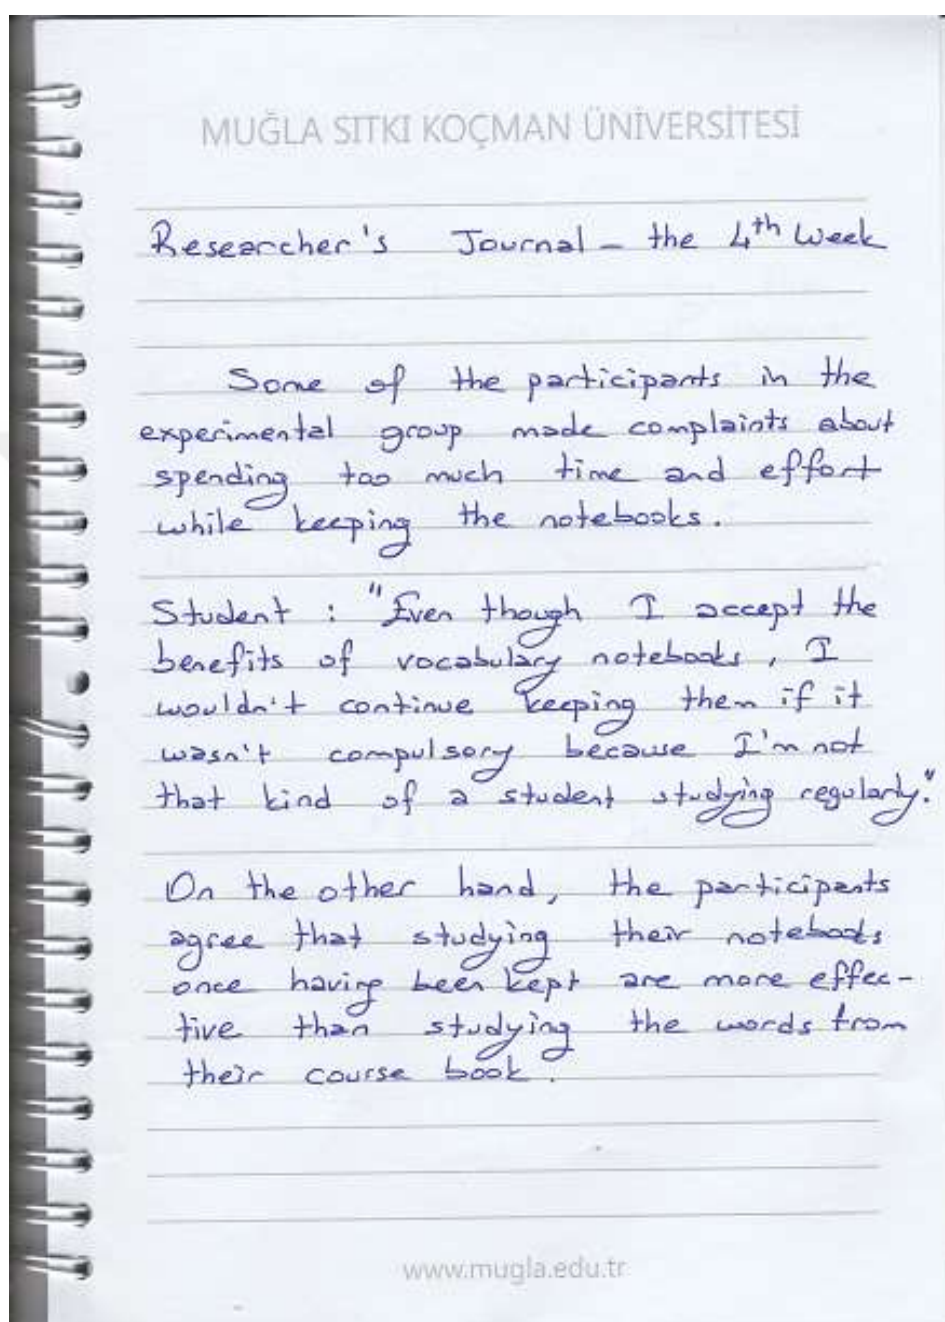 MUĞLA SITKI KOÇMAN ÜNİVERSİTESİ
Researcher's Journal - the 4th Week
Some of the participants in the
experimental group made complaints about
spending too much time and effort
while keeping the notebooks.
Student : "Even though I accept the
benefits of vocabulary notebooks, I
wouldn't continue keeping them if it
wasn't compulsory because I'm not
that kind of a student studying regularly."
On the other hand, the participants
agree that studying their notebooks
once having been kept are more effec-
tive than studying the words from
their course book.
www.mugla.edu.tr